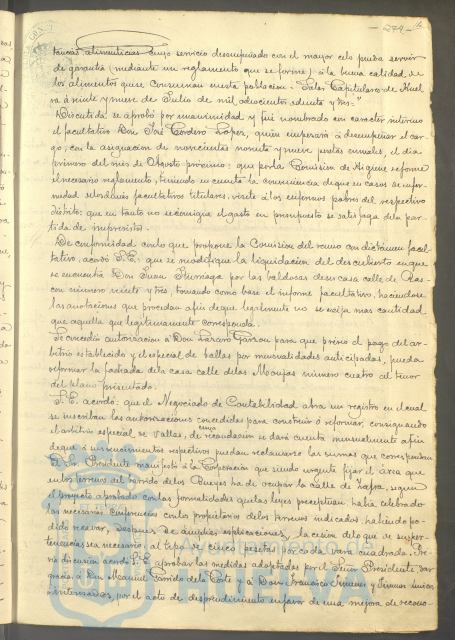 - 274 -
tancias alimenticias cuyo servicio desempeñado con el mayor celo pueda servir
de garantia (mediante un reglamento que se forme) á la buena calidad de
los alimentos que se consuman en esta poblacion. Salas Capitulares de Huel
va á veinte y nueve de Julio de mil ochocientos ochenta y tres."
Discutida se aprobó por unanimidad, y fué nombrado con caracter interino
el facultativo Don José Cordero Lopez, quien empezará á desempeñar el car
go, con la asignacion de novecientas noventa y nueve pesetas anuales, el dia
primero del mes de Agosto proximo: que por la Comision de Higiene se forme
el necesario reglamento, teniendo en cuenta la conveniencia de que en casos de enfer
medad de los demás facultativos titulares, visite á los enfermos pobres del respectivo
distrito: que en tanto no se consigna el gasto en presupuesto se satisfaga de la par
tida de imprevistos.
De conformidad con lo que propone la Comision del ramo con dictámen facul
tativo, acordó S.E. que se modifique la liquidacion del descubierto en que
se encuentra Don Juan por las baldosas de su casa calle de Ras
con número veinte y tres, tomando como base el informe facultativo, haciendose
las anotaciones que procedan afin de que legalmente no se exija mas cantidad
que aquella que legitimamente corresponda.
Se concedió autorizacion á Don Lázaro para que previo el pago del ar
bitrio establecido y el especial de vallas por mensualidades anticipadas, pueda
reformar la fachada de la casa calle de las Monjas número cuatro al tenor
del plano presentado.
S.E. acordó: que el Negociado de Contabilidad abra un registro en el cual
se inscriban las autorizaciones concedidas para construir ó reformar, consignando
el arbitrio especial de vallas, de cuya recaudacion se dará cuenta mensualmente afin
de que á sus vencimientos respectivos puedan reclamarse las sumas que correspondan
El Sr. Presidente manifestó á la Corporacion que siendo urgente fijar el área que
en los terrenos del Corrido de los Bueyes ha de ocupar la calle de Zafra, segun
el proyecto aprobado con las formalidades que las leyes preceptuan, habia celebrado
las necesarias conferencias con los propietarios de los terrenos indicados, habiendo po
dido recavar, despues de ámplias esplicaciones, la cesion del que de sus per
tenencias sea necesario, al tipo de cinco pesetas por cada vara cuadrada. Pre
via discusion acordó S.E. aprobar las medidas adoptadas por el Señor Presidente, dar
gracias á Don Manuel Garrido de la Corte y á Don Francisco Jimenez y Jimenez unicos
interesados, por el acto de desprendimiento en favor de una mejora de recono
Ayuntamiento de
HUELVA